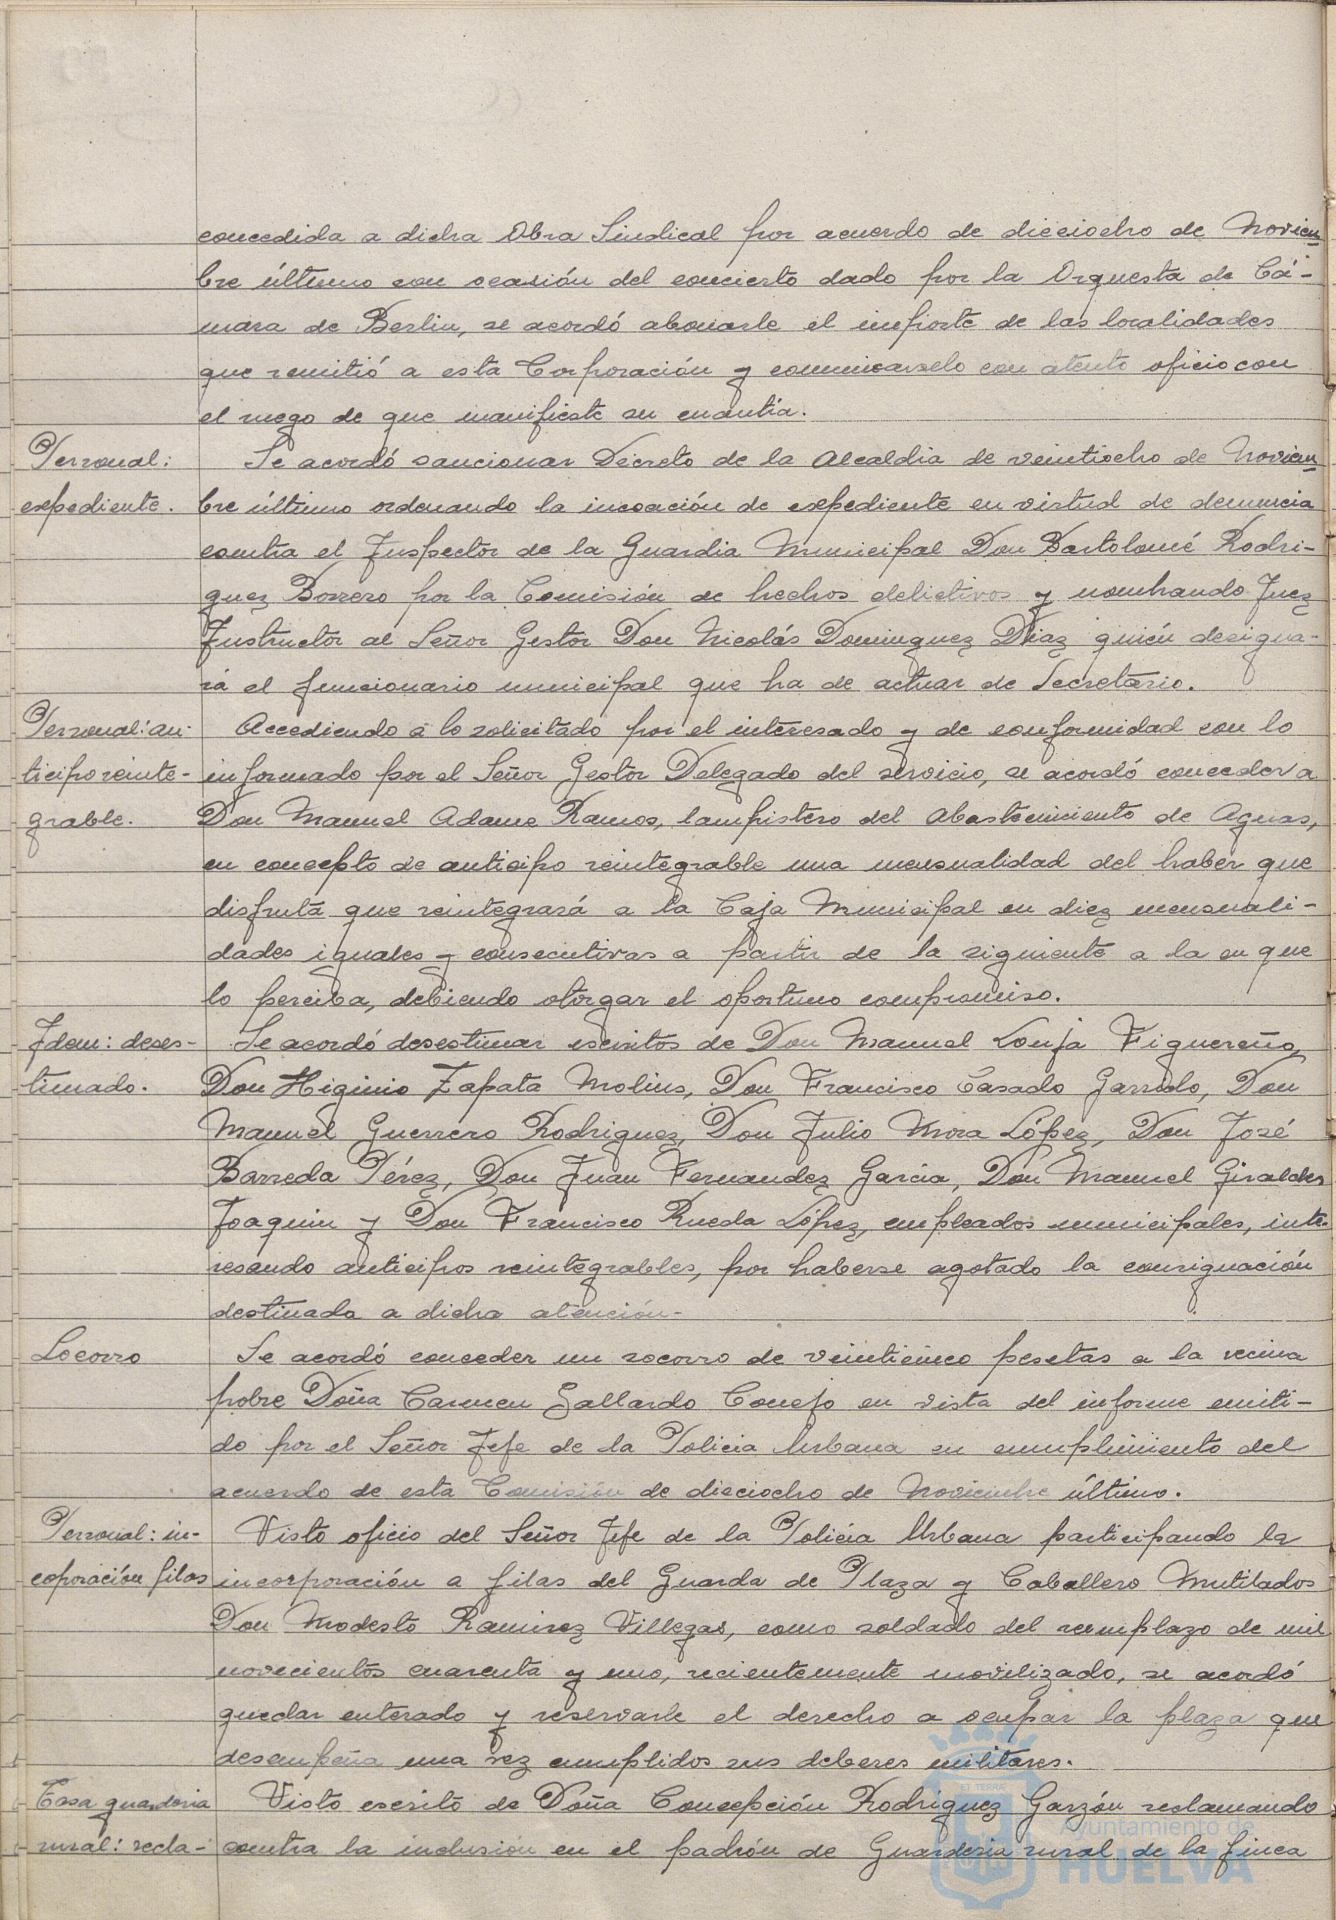 concedida a dicha Obra Sindical por acuerdo de dieciocho de Noviem
bre último con ocasión del concierto dado por la Orquesta de Cá-
mara de Berlin, se acordó abonarle el importe de las localidades
que remitió a esta Corporación y comunicarselo con atento oficio con
el ruego de que manifieste su cuantía.
Personal:
expediente.
Se acordó sancionar Decreto de la Alcaldia de veintiocho de Noviem
bre último ordenando la incoación de expediente en virtud de denuncia
contra el Inspector de la Guardia Municipal Don Bartolomé Rodri-
guez Borrero por la Comisión de hechos delictivos y nombrando Juez
Instructor al Señor Gestor Don Nicolás Dominguez Diaz quién designa-
rá el funcionario municipal que ha de actuar de Secretario.
Personal: an-
ticipo reinte-
grable.
Accediendo a lo solicitado por el interesado y de conformidad con lo
informado por el Señor Gestor Delegado del servicio, se acordó conceder a
Don Manuel Adame Ramos, lampistero del Abastecimiento de Aguas,
en concepto de anticipo reintegrable una mensualidad del haber que
disfruta que reintegrará a la Caja Municipal en diez mensuali-
dades iguales y consecutivas a partir de la siguiente a la en que
lo perciba, debiendo otorgar el oportuno compromiso.
Idem: deses-
timado.
Se acordó desestimar escritos de Don Manuel Lonja Figuereño,
Don Higinio Zapata Molins, Don Francisco Casado Garrido, Don
Manuel Guerrero Rodriguez, Don Julio Mora López, Don José
Barreda Pérez, Don Juan Fernandez Garcia, Don Manuel Giraldez
Joaquin y Don Francisco Rueda López, empleados municipales, inte-
resando anticipos reintegrables, por haberse agotado la consignación
destinada a dicha atención.-
Socorro
Se acordó conceder un socorro de veinticinco pesetas a la vecina
pobre Doña Carmen Gallardo Conejo en vista del informe emiti-
do por el Señor Jefe de la Policia Urbana en cumplimiento del
acuerdo de esta Comisión de dieciocho de Noviembre último.
Personal: in-
coporación filas
Visto oficio del Señor Jefe de la Policía Urbana participando la
incorporación a filas del Guarda de Plaza y Caballero Mutilados
Don Modesto Ramirez Villegas, como soldado del reemplazo de mil
novecientos cuarenta y uno, recientemente movilizado, se acordó
quedar enterado y reservarle el derecho a ocupar la plaza que
desempeña una vez cumplidos sus deberes militares.
Tasa guarderia
rural: recla-
Visto escrito de Doña Concepción Rodriguez Garzón reclamando
contra la inclusión en el padrón de Guarderia rural de la finca
ET TERRÆ
Ayuntamiento de
HUELVA